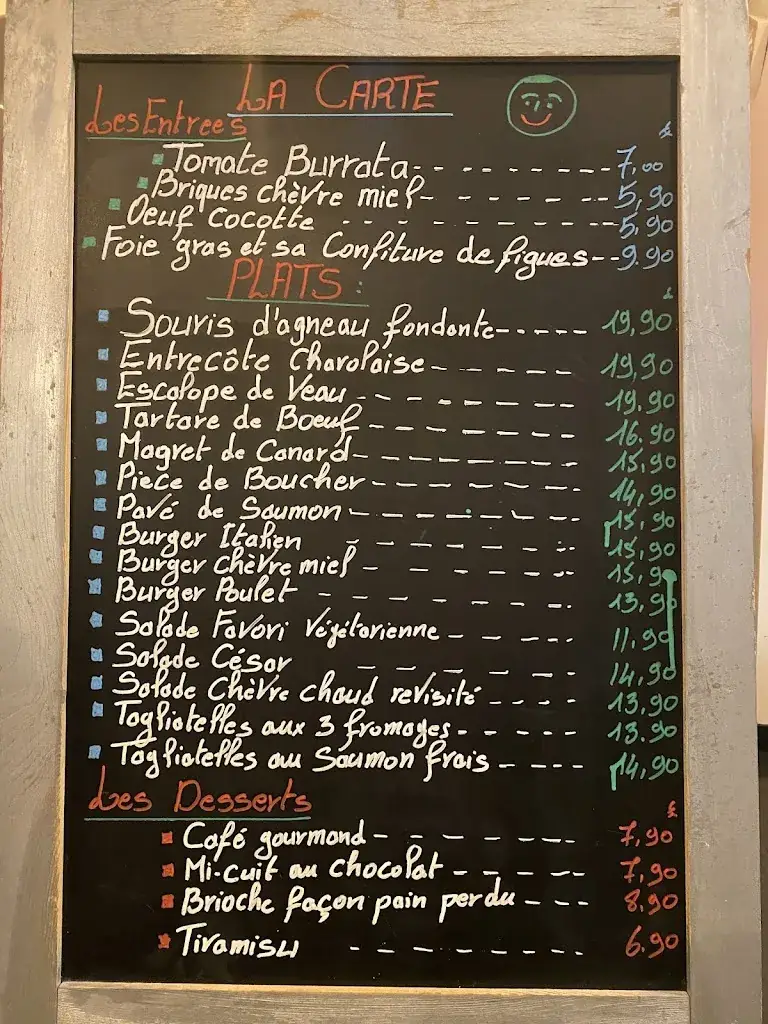 LA CARTE
Les Entrees
£
Tomate Burrata 7,00
Briques chèvre miel 5,90
Oeuf cocotte 5.90
Foie gras et sa Confiture de figues 9.90
PLATS :
Souris d'agneau fondante 19,90
Entrecôte Charolaise 19,90
Escalope de Veau 19.90
Tartare de Boeuf 16.90
Magret de Canard 15,90
Piece de Boucher 14,90
Pavé de Saumon 15,90
Burger Italien 15,90
Burger chèvre miel 15,90
Burger Poulet 13,90
Salade Favori Végétarienne 11,90
Salade César 14,90
Salade Chèvre chaud revisité 13,90
Tagliatelles aux 3 fromages 13.90
Tagliatelles au Saumon frais 14,90
Les Desserts
£
Café gourmand 7,90
Mi-cuit au chocolat 7,90
Brioche façon pain perdu 8,90
Tiramisu 6.90